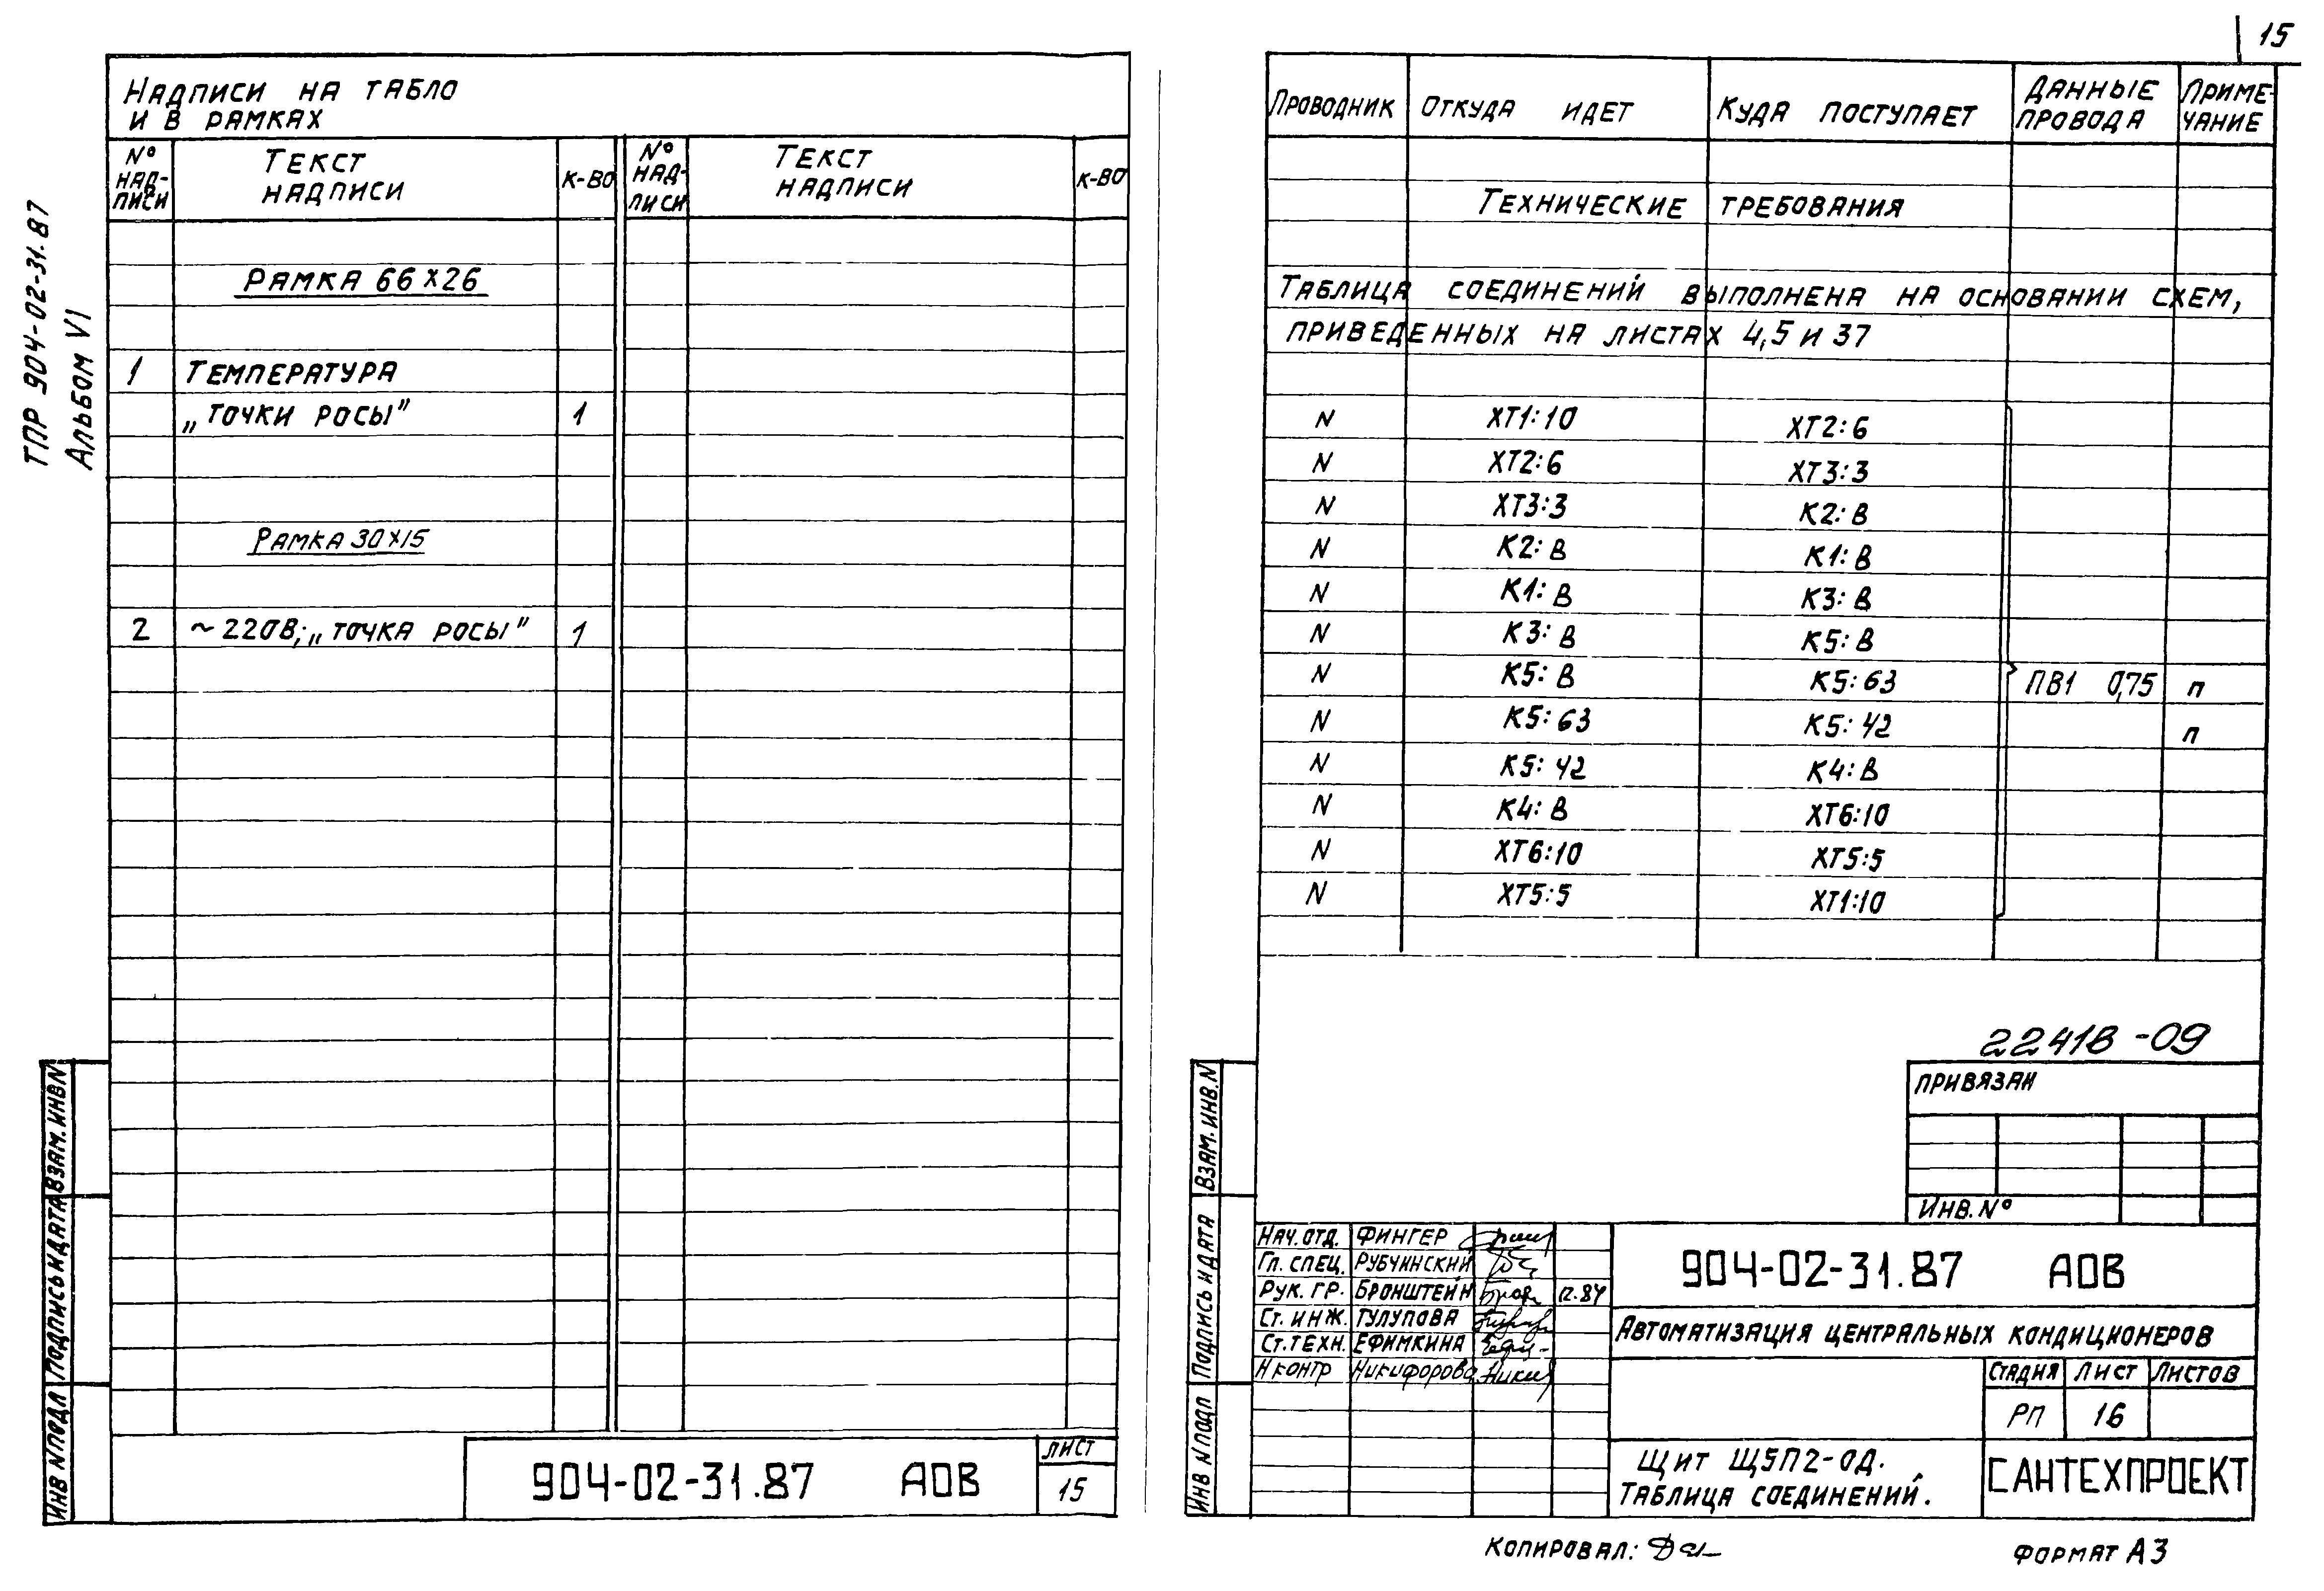 15
ТПР 904-02-31.87
Альбом VI
Надписи на табло
и в рамках
№ надписи Текст надписи к-во № надписи Текст надписи к-во
Рамка 66х26
1 Температура
„точки росы" 1
Рамка 30х15
2 ~220В; „точка росы" 1
Инв N подл Подпись и дата Взам. инв. N
904-02-31.87 АОВ
лист
15
Проводник Откуда идет Куда поступает Данные провода Примечание
Технические требования
Таблица соединений выполнена на основании схем,
приведенных на листах 4,5 и 37
N ХТ1:10 ХТ2:6
N ХТ2:6 ХТ3:3
N ХТ3:3 К2:В
N К2:В К1:В
N К1:В К3:В
N К3:В К5:В
N К5:В К5:63 ПВ1 0,75 п
N К5:63 К5:42 п
N К5:42 К4:В
N К4:В ХТ6:10
N ХТ6:10 ХТ5:5
N ХТ5:5 ХТ1:10
22418-09
привязан
Инв. №
Инв N подл Подпись и дата Взам. инв. N
Нач. отд. Фингер
Гл. спец. Рубчинский
Рук. гр. Бронштейн
Ст. инж. Тулупова
Ст. техн. Ефимкина
Н контр Никифорова
904-02-31.87 АОВ
Автоматизация центральных кондиционеров
Стадия Лист Листов
РП 16
Щит Щ5П2-ОД.
Таблица соединений.
САНТЕХПРОЕКТ
Копировал:
формат А3